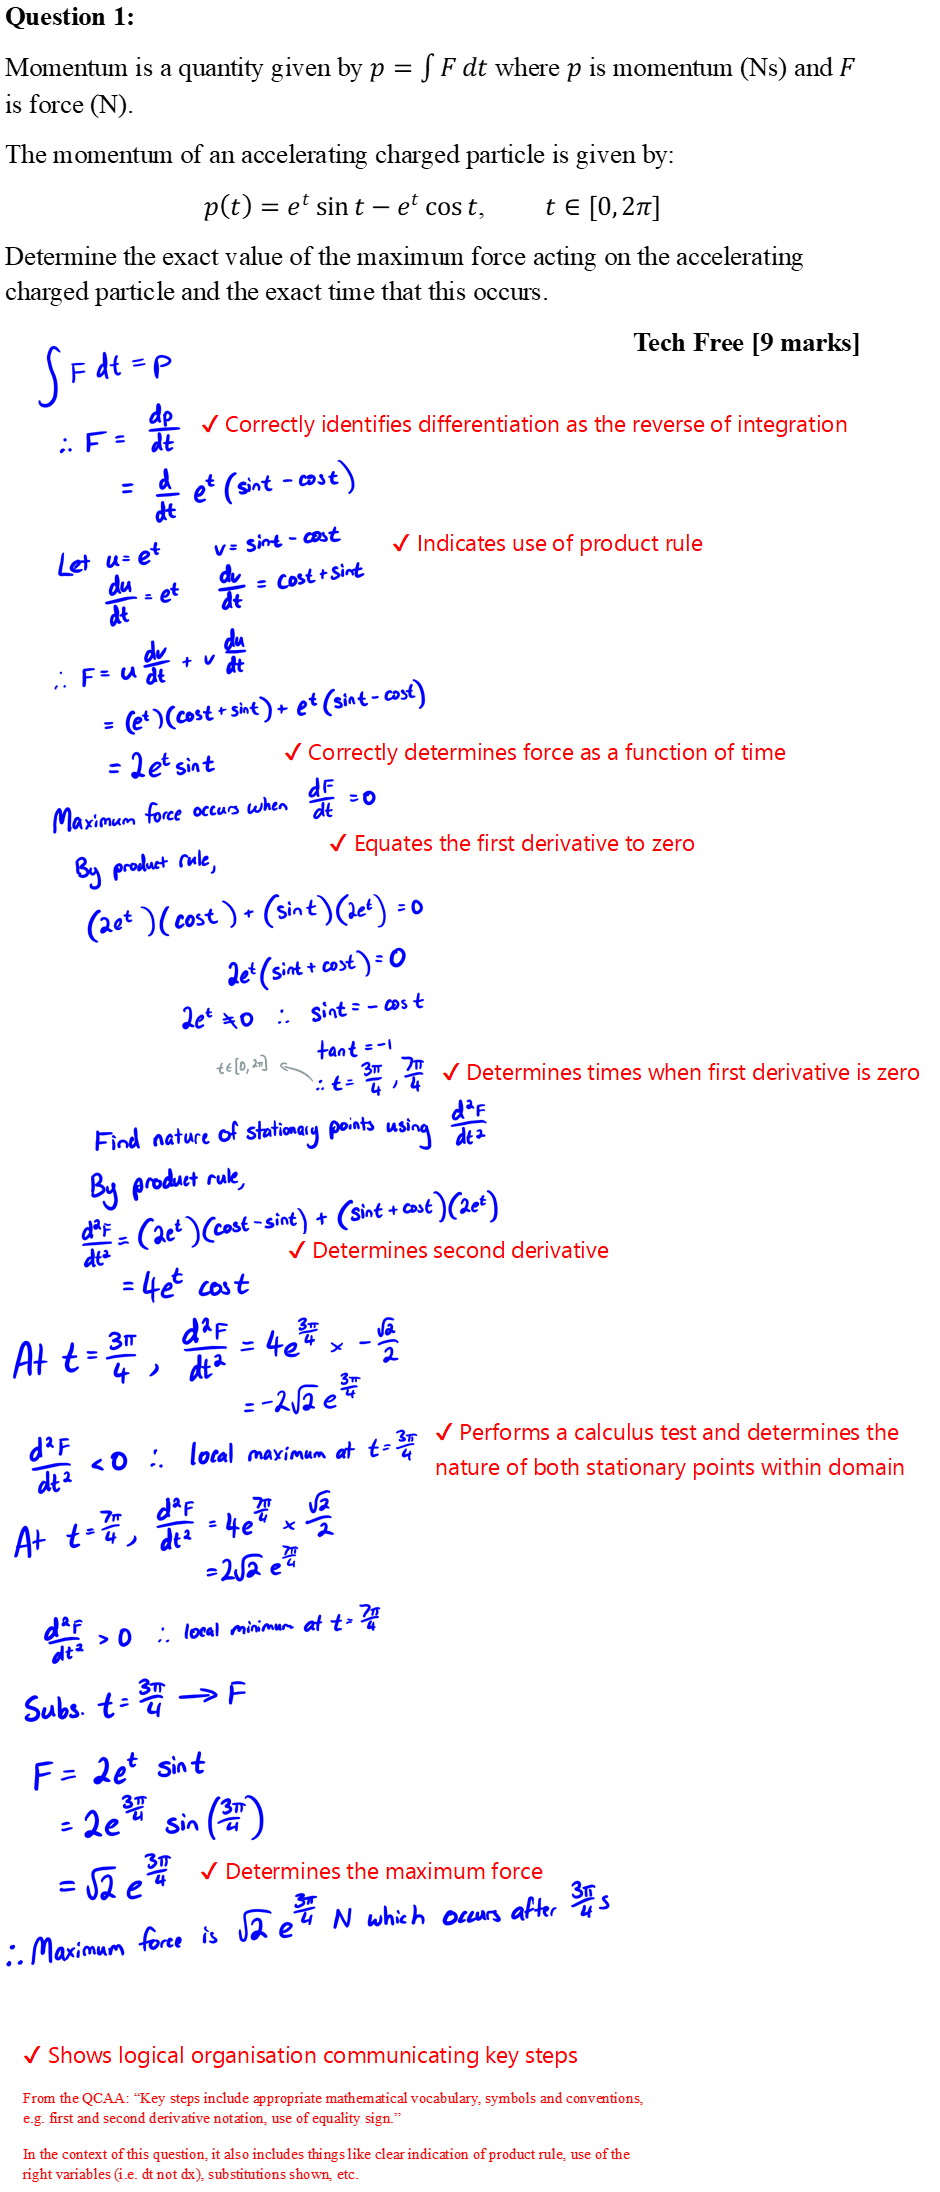 Question 1:
Momentum is a quantity given by p = ∫ F dt where p is momentum (Ns) and F
is force (N).
The momentum of an accelerating charged particle is given by:
p(t) = e^t sin t − e^t cos t, t ∈ [0, 2π]
Determine the exact value of the maximum force acting on the accelerating
charged particle and the exact time that this occurs.
Tech Free [9 marks]
∫ F dt = p
∴ F = dp/dt ✓ Correctly identifies differentiation as the reverse of integration
= d/dt e^t (sint − cost)
Let u = e^t v = sint − cost ✓ Indicates use of product rule
du/dt = e^t dv/dt = cost + sint
∴ F = u dv/dt + v du/dt
= (e^t)(cost + sint) + e^t (sint − cost)
= 2e^t sint ✓ Correctly determines force as a function of time
Maximum force occurs when dF/dt = 0
✓ Equates the first derivative to zero
By product rule,
(2e^t)(cost) + (sint)(2e^t) = 0
2e^t (sint + cost) = 0
2e^t ≠ 0 ∴ sint = − cost
tant = −1
t∈[0, 2π] ∴ t = 3π/4, 7π/4 ✓ Determines times when first derivative is zero
Find nature of stationary points using d²F/dt²
By product rule,
d²F/dt² = (2e^t)(cost − sint) + (sint + cost)(2e^t)
✓ Determines second derivative
= 4e^t cost
At t = 3π/4, d²F/dt² = 4e^(3π/4) × −√2/2
= −2√2 e^(3π/4)
d²F/dt² < 0 ∴ local maximum at t = 3π/4 ✓ Performs a calculus test and determines the
nature of both stationary points within domain
At t = 7π/4, d²F/dt² = 4e^(7π/4) × √2/2
= 2√2 e^(7π/4)
d²F/dt² > 0 ∴ local minimum at t = 7π/4
Subs. t = 3π/4 → F
F = 2e^t sint
= 2e^(3π/4) sin (3π/4)
= √2 e^(3π/4) ✓ Determines the maximum force
∴ Maximum force is √2 e^(3π/4) N which occurs after 3π/4 s
✓ Shows logical organisation communicating key steps
From the QCAA: “Key steps include appropriate mathematical vocabulary, symbols and conventions,
e.g. first and second derivative notation, use of equality sign.”
In the context of this question, it also includes things like clear indication of product rule, use of the
right variables (i.e. dt not dx), substitutions shown, etc.